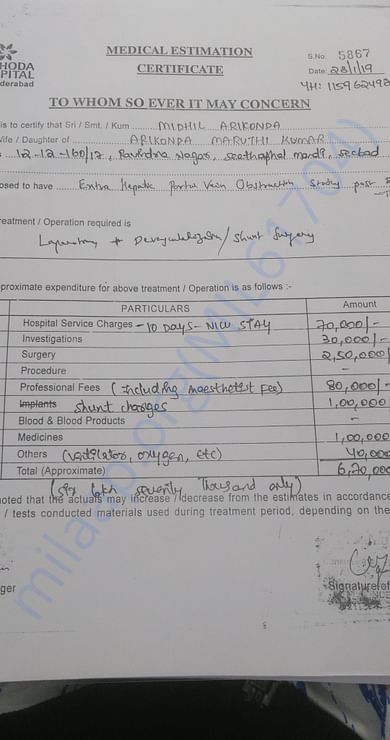 HODA
PITAL
derabad
MEDICAL ESTIMATION
CERTIFICATE
S.No. 5867
Date: 28/1/19
YH: 11596249
TO WHOM SO EVER IT MAY CONCERN
is to certify that Sri / Smt. / Kum MIDHIL ARIKONDA
ife / Daughter of ARIKONDA MARUTHI KUMAR
12-12-160/17, Ravindra Nagar, Seethaphal mandi, secbad
osed to have Extra Hepatic Portal Vein Obstruction post
reatment / Operation required is
Laparotomy + Devascularization / Shunt Surgery
proximate expenditure for above treatment / Operation is as follows :-
PARTICULARS Amount
Hospital Service Charges - 10 DAYS - NICU STAY 70,000/-
Investigations 30,000/-
Surgery 2,50,000/
Procedure -
Professional Fees (Including anaesthetist Fee) 80,000/-
Implants shunt charges 1,00,000
Blood & Blood Products -
Medicines 1,00,000
Others (ventilator, oxygen, etc) 40,000
Total (Approximate) 6,70,000
(Six lakh seventy Thousand only)
noted that the actuals may increase / decrease from the estimates in accordance
/ tests conducted materials used during treatment period, depending on the
ger
Signature of
milaap.org(MIL61704)